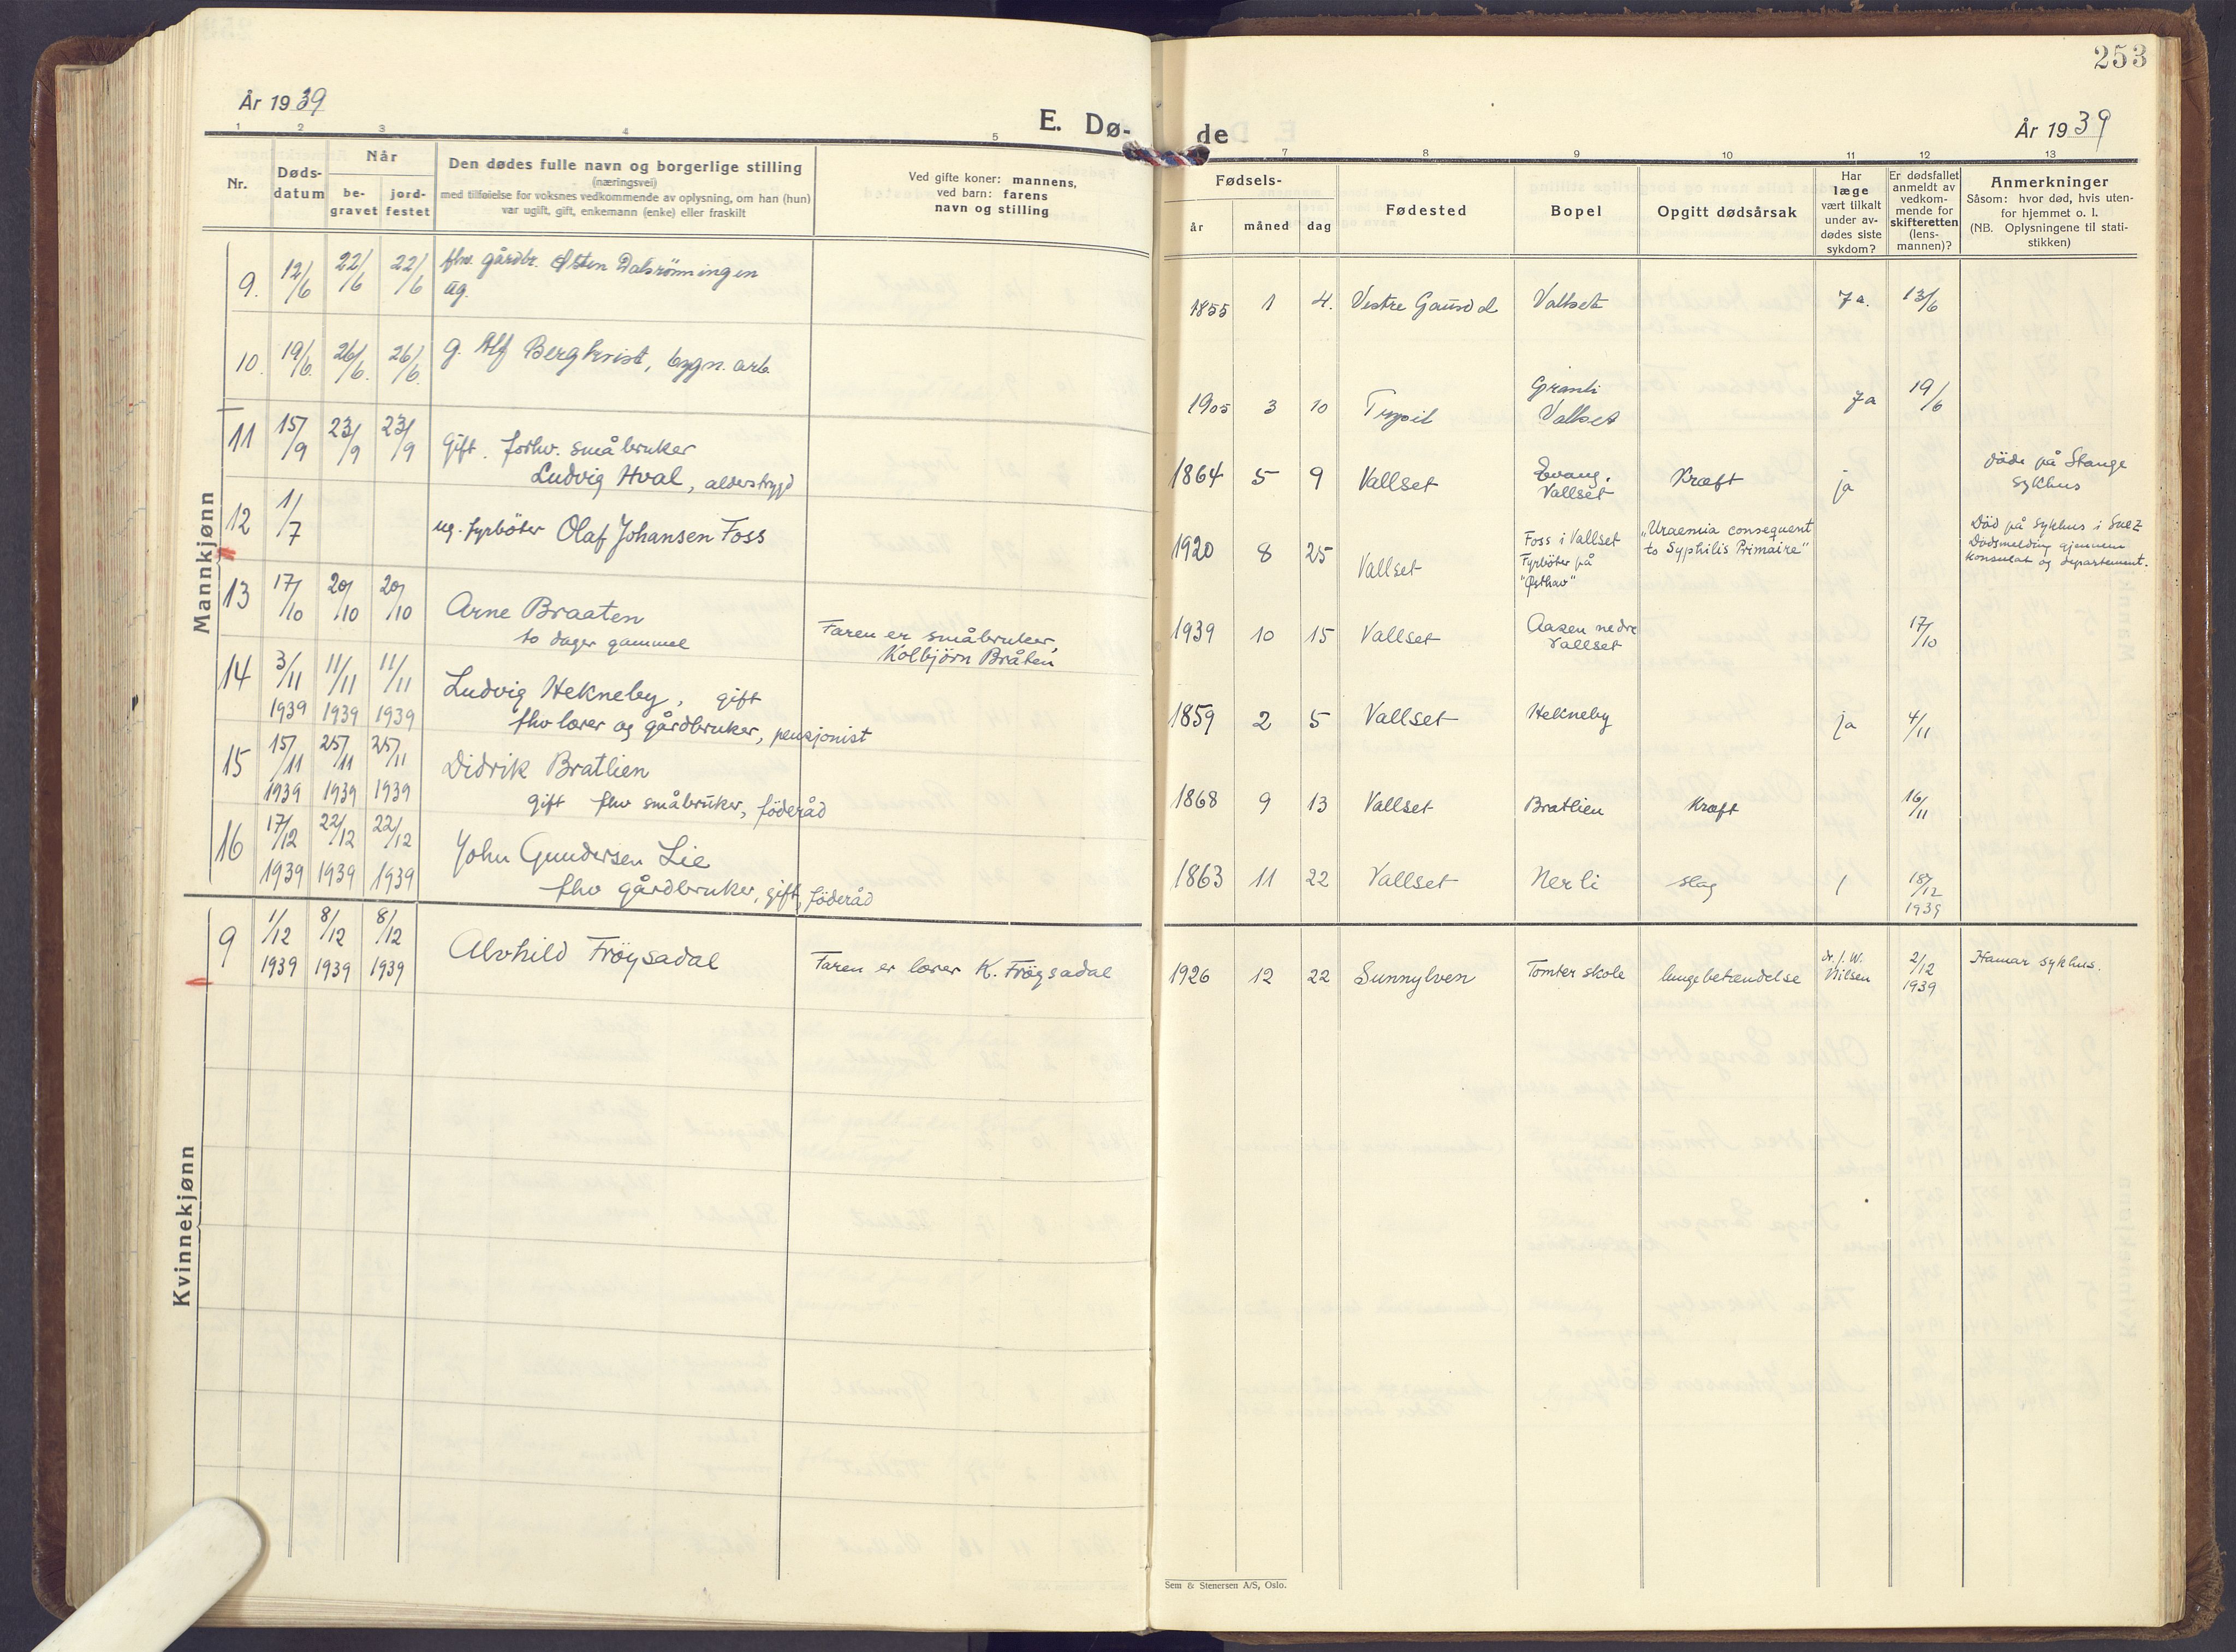 253
År 1939
E. Dø-
de
År 1939
1 2 3 4 5 7 8 9 10 11 12 13
Nr.
Døds-
datum
Når
be-
gravet
jord-
festet
Den dødes fulle navn og borgerlige stilling
(næringsvei)
med tilføielse for voksnes vedkommende av oplysning, om han (hun)
var ugift, gift, enkemann (enke) eller fraskilt
Ved gifte koner: mannens,
ved barn: farens
navn og stilling
Fødsels-
år måned dag
Fødested
Bopel
Opgitt dødsårsak
Har
læge
vært tilkalt
under av-
dødes siste
sykdom?
Er dødsfallet
anmeldt av
vedkom-
mende for
skifteretten
(lens-
mannen)?
Anmerkninger
Såsom: hvor død, hvis uten-
for hjemmet o. l.
(NB. Oplysningene til stati-
stikken)
Mannkjønn
9. 12/6 22/6 22/6 fhv. gårdbr. Østen Dalsrønningen
ug.
1855 1 4. Vestre Gausdal Vallset Ja. 13/6
10. 19/6. 26/6. 26/6. g. Alf Bergkvist, bygn. arb.
1905 3 10 Trysil Granli
Vallset Ja 19/6
11 15/9 23/9 23/9 Gift. forhv. småbruker
Ludvig Hval, alderstrygd
1864 5 9 Vallset Evang.
Vallset Kræft ja døde på Stange
sykhus
12 1/7 ug. fyrbøter Olaf Johansen Foss
1920 8 25 Vallset Foss i Vallset
Fyrbøter på
"Østhav"
"Uraemia consequent
to Syphilis Primaire"
Død på sykhus i Suez
Dødsmelding gjennem
konsulat og departement.
13 17/10 20/10 20/10 Arne Braaten
to dager gammel
Faren er småbruker,
Kolbjørn Bråten
1939 10 15 Vallset Aasen nedre
Vallset 17/10
14 3/11 1939 11/11 1939 11/11 1939 Ludvig Hekneby, gift
fhv lærer og gårdbruker, pensjonist
1859 2 5 Vallset Hekneby ja 4/11
15 15/11 1939 25/11 1939 25/11 1939 Didrik Bratlien
gift fhv småbruker, föderåd
1868 9 13 Vallset Bratlien Kræft 16/11
16 17/12 1939 22/12 1939 22/12 1939 John Gundersen Lie
fhv gårdbruker, gift, föderåd
1863 11 22 Vallset Nerli slag / 18/12
1939
Kvinnekjønn
9 1/12 1939 8/12 1939 8/12 1939 Alvhild Frøysadal
Faren er lærer K. Frøysadal
1926 12 22 Sunnylven Tomter skole lungebetændelse dr. J. W.
Nilsen 2/12
1939 Hamar sykhus.
Sem & Stenersen A/S, Oslo.